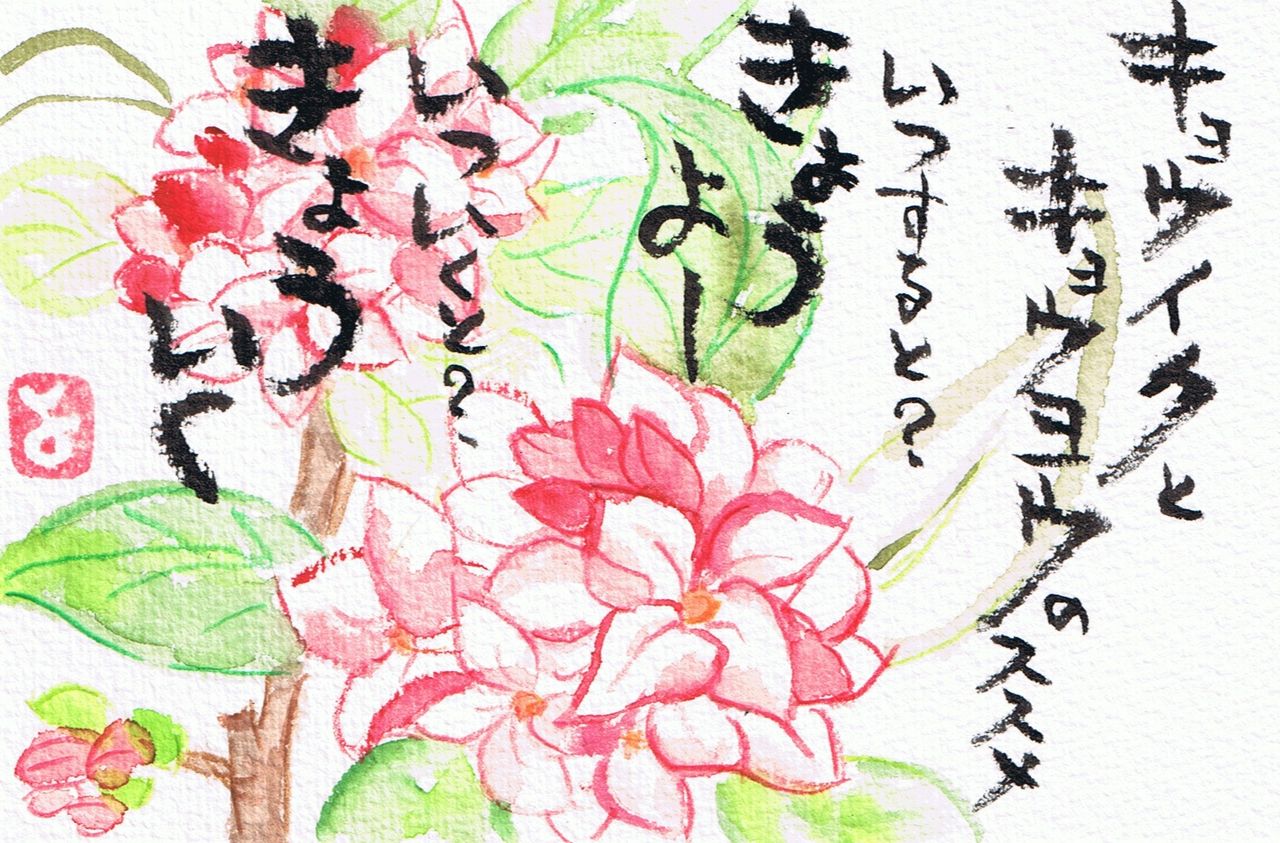 キョウイクと
キョウヨウのススメ
いつすると?
きょう
よー
いついくと?
きょう
いく
と